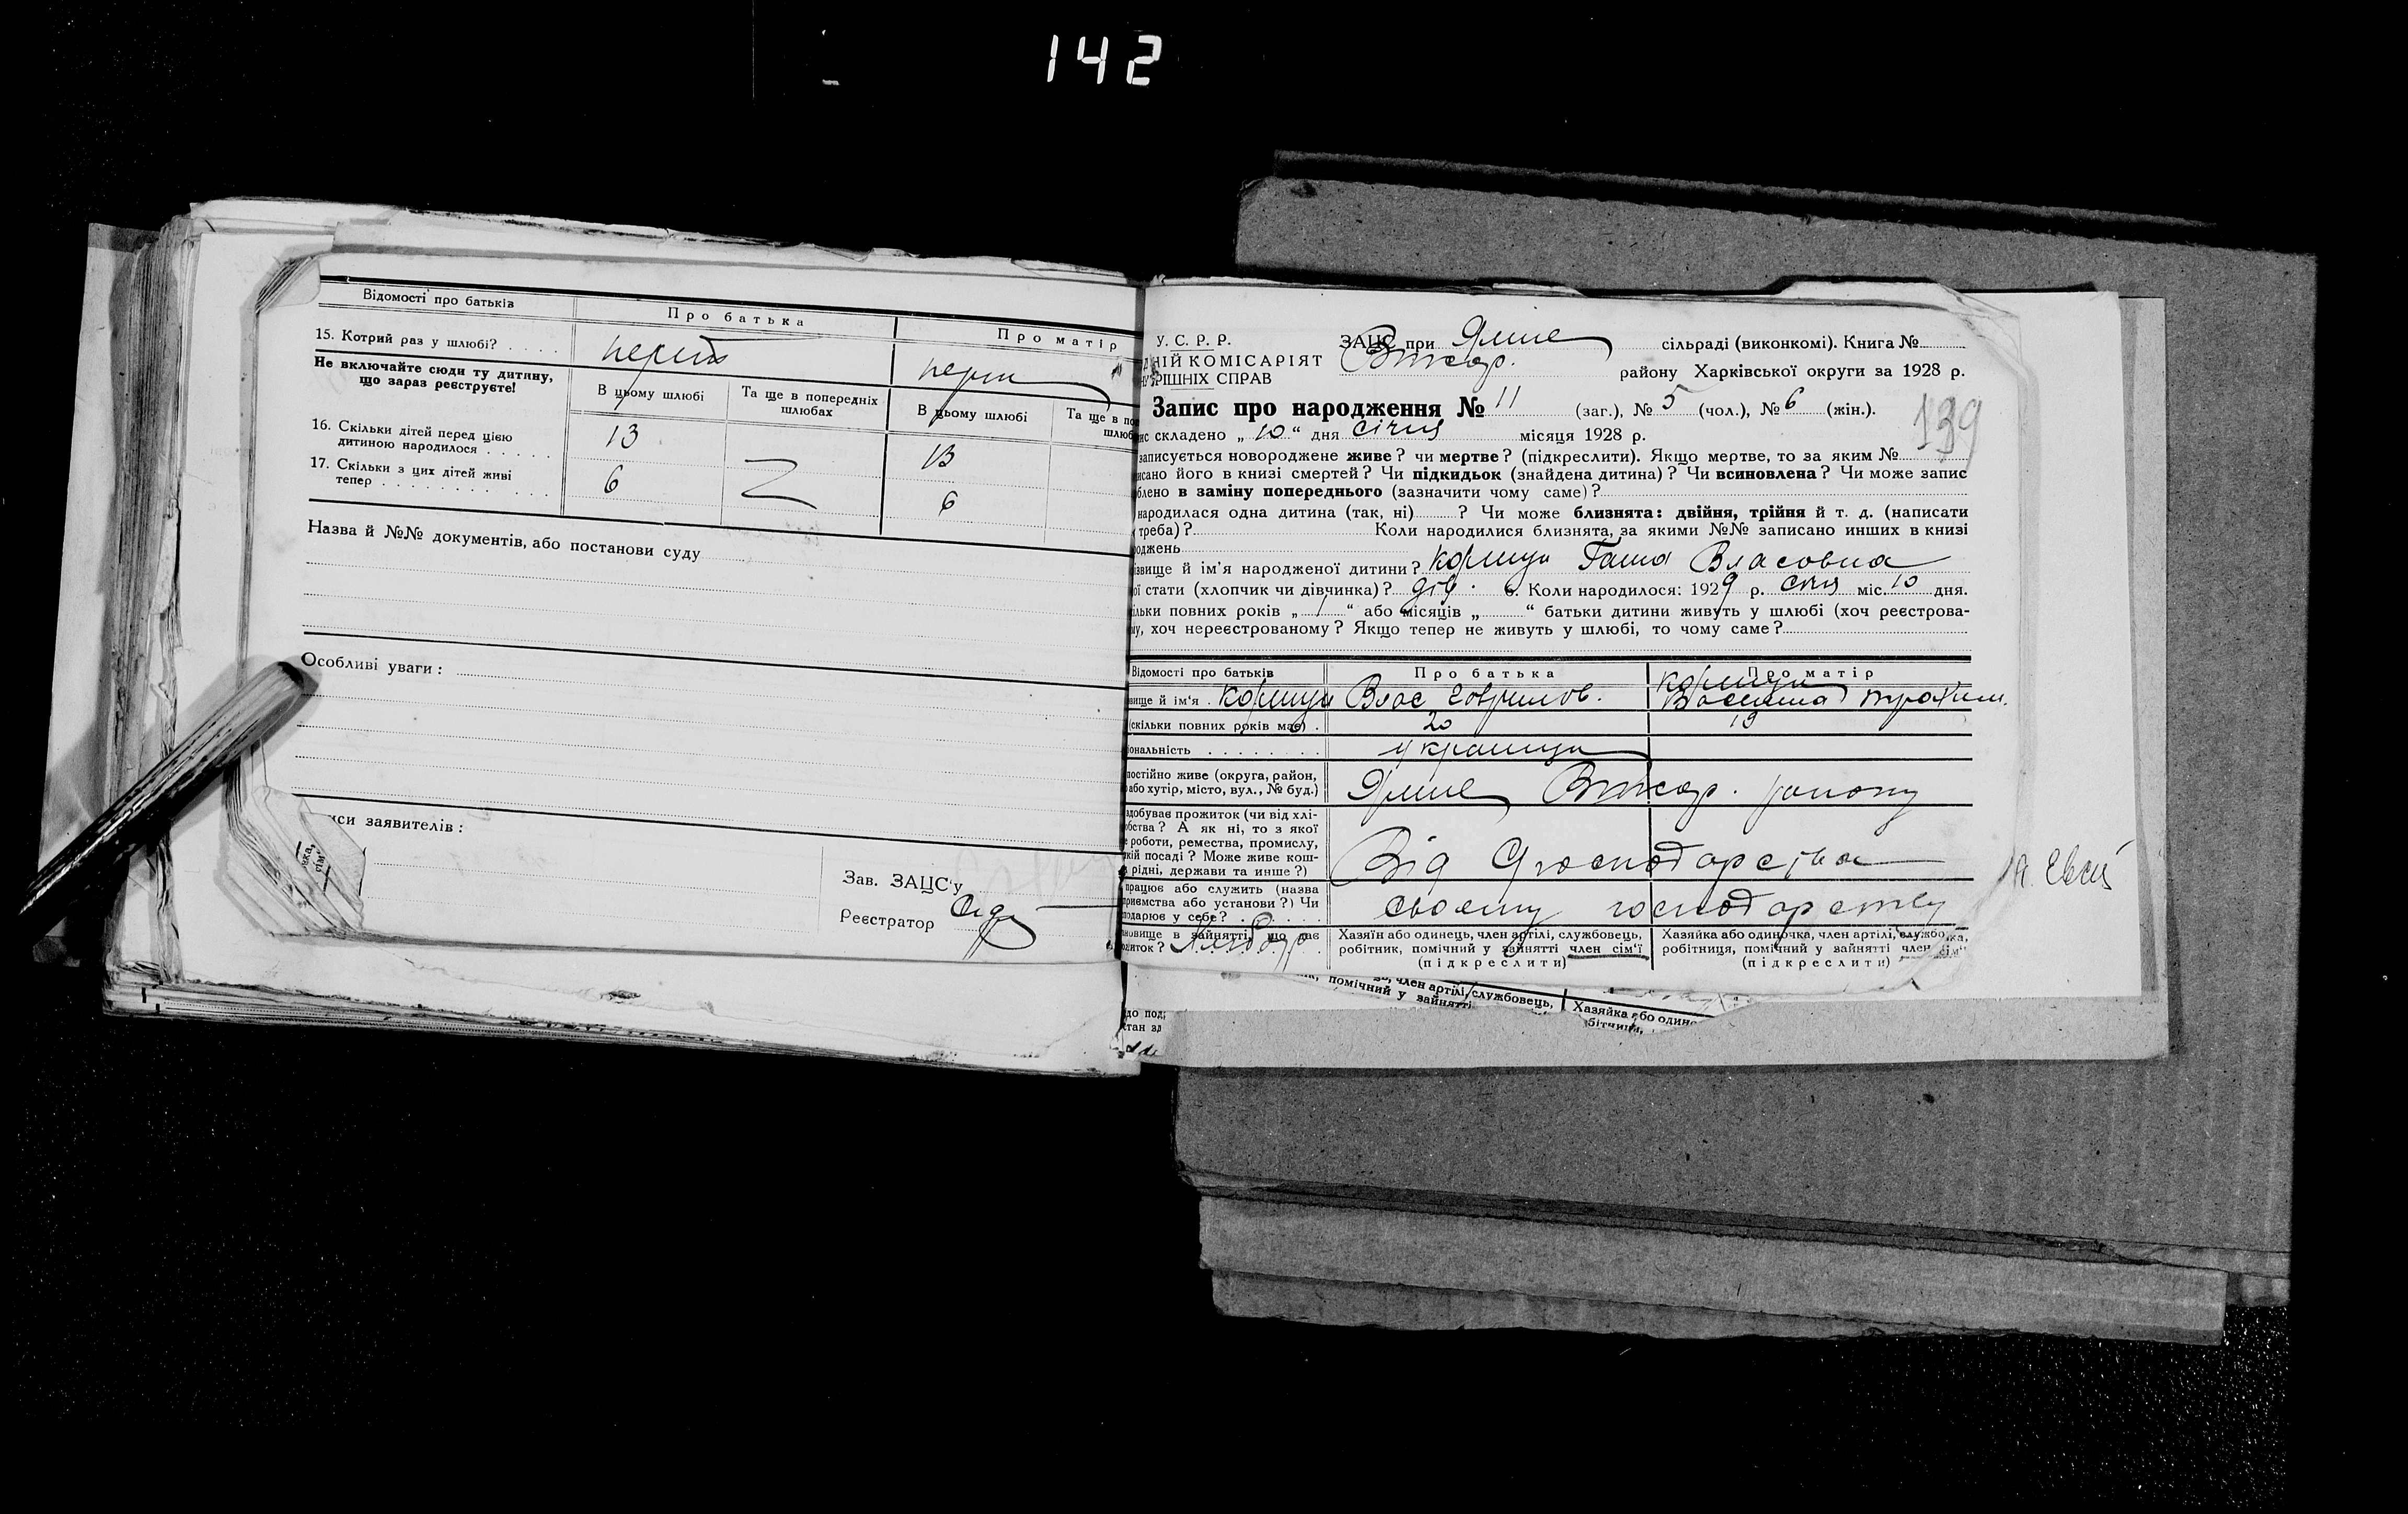 142
Відомості про батьків
Про батька
Про матір
15. Котрий раз у шлюбі? . . . .
Не включайте сюди ту дитину,
що зараз реєструєте!
В цьому шлюбі
Та ще в попередніх
шлюбах
В цьому шлюбі
Та ще в поп
шлюб
16. Скільки дітей перед цією
дитиною народилося . . . . .
13
13
17. Скільки з цих дітей живі
тепер . . . . . . . . . . . .
6
6
Назва й №№ документів, або постанови суду
Особливі уваги:
иси заявителів:
Зав. ЗАЦС'у
Реєстратор
У. С. Р. Р.
НІЙ КОМІСАРІЯТ
РІШНІХ СПРАВ
ЗАЦС при
сільраді (виконкомі). Книга №
району Харківської округи за 1928 р.
Запис про народження № 11 (заг.), № 5 (чол.), № 6 (жін.).
139
ис складено „ 10 “ дня січня місяця 1928 р.
записується новороджене живе? чи мертве? (підкреслити). Якщо мертве, то за яким №
исано його в книзі смертей? Чи підкидьок (знайдена дитина)? Чи всиновлена? Чи може запис
блено в заміну попереднього (зазначити чому саме)?
народилася одна дитина (так, ні) ? Чи може близнята: двійня, трійня й т. д. (написати
треба)? Коли народилися близнята, за якими №№ записано инших в книзі
оджень
звище й ім'я народженої дитини? Коршун Ганна Власовна
ої стати (хлопчик чи дівчинка)? дів. 6. Коли народилося: 1929 р. січня міс. 10 дня.
ільки повних років „ 1 “ або місяців „ “ батьки дитини живуть у шлюбі (хоч реєстрова-
му, хоч нереєстрованому? Якщо тепер не живуть у шлюбі, то чому саме?
Відомості про батьків
Про батька
Про матір
вище й ім'я . Коршун Влас Гаврилов.
Коршун
Трохим.
(скільки повних років має) .
20
19
іональність . . . . . . . .
постійно живе (округа, район,
або хутір, місто, вул., № буд.)
району
здобуває прожиток (чи від хлі-
обства? А як ні, то з якої
роботи, ремества, промислу,
якій посаді? Може живе кош-
рідні, держави та инше?)
Від господарства
працює або служить (назва
приємства або установи?) Чи
подарює у себе? . . . . . .
своєму господарству
новище в зайнятті, що дає
житок?
Хазяїн або одинець, член артілі, службовець,
робітник, помічний у зайнятті член сім'ї
(підкреслити)
Хазяйка або одиночка, член артілі, службо
робітниця, помічний у зайнятті член
(підкреслити)
член артілі, службовець,
помічний у зайнятті
Хазяйка або одино
бітниця,